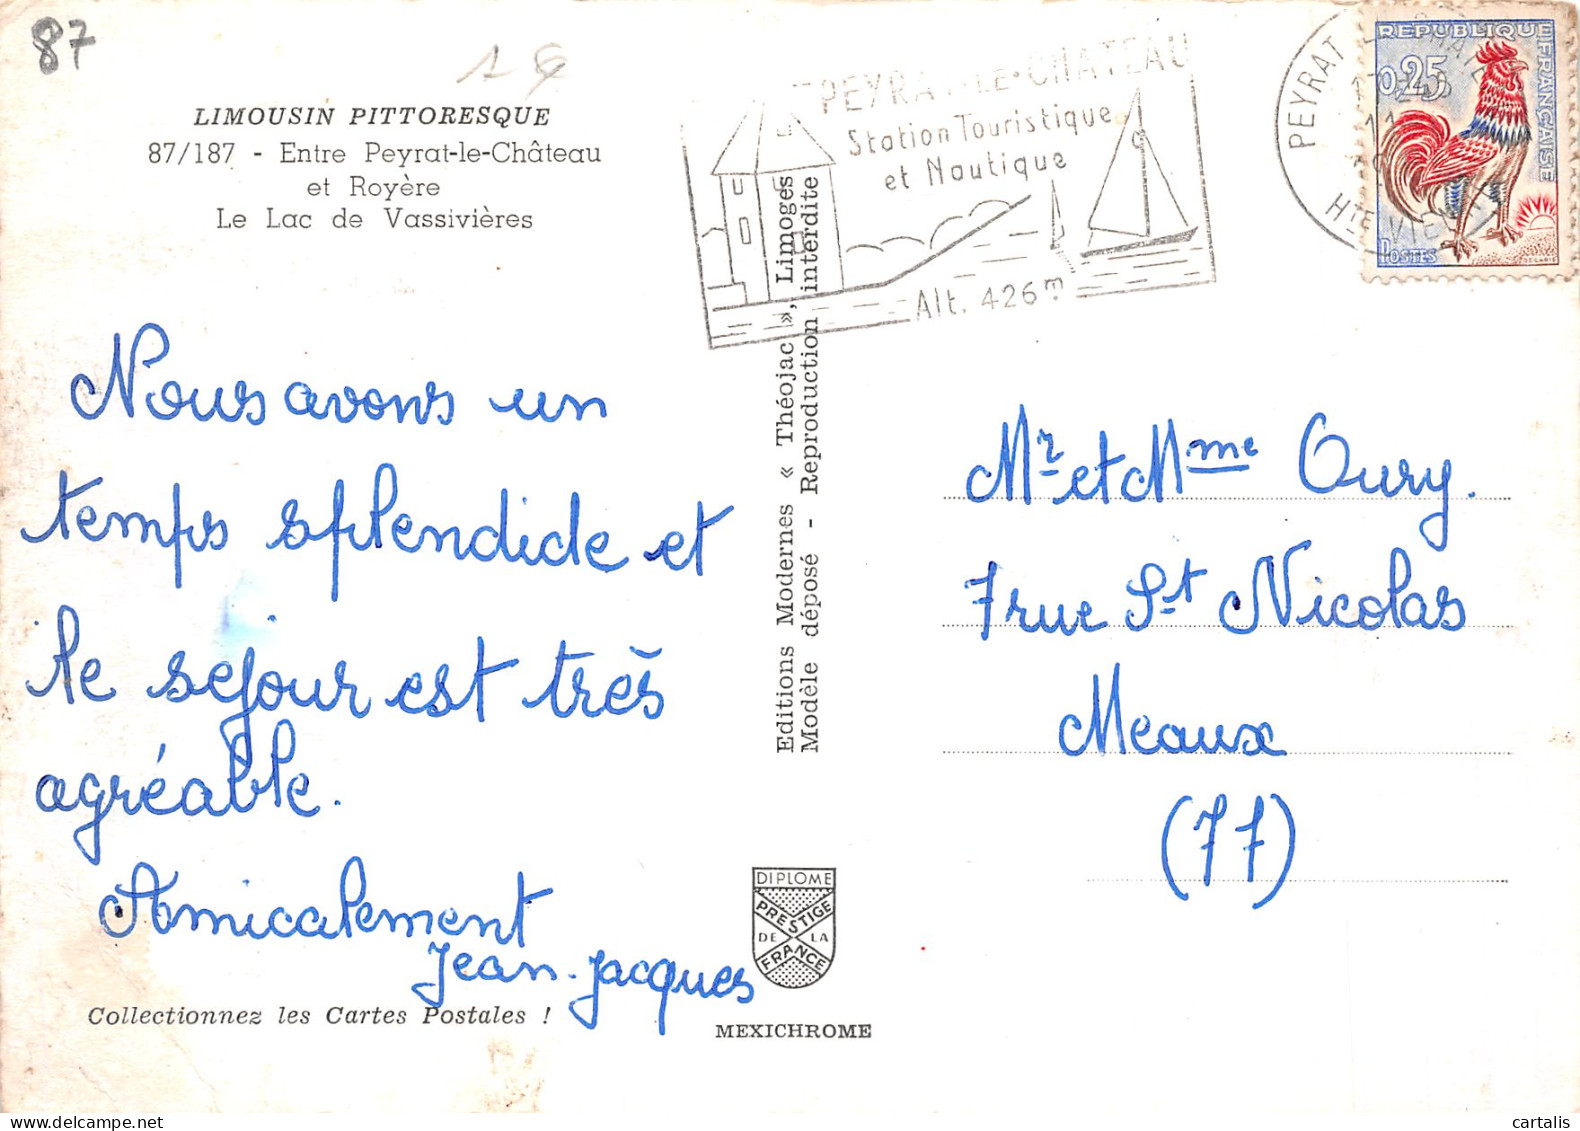 87
LIMOUSIN PITTORESQUE
87/187 - Entre Peyrat-le-Château
et Royère
Le Lac de Vassivières
Nous avons un
temps splendide et
le sejour est très
agréable.
Amicalement
Jean-Jacques
Collectionnez les Cartes Postales !
Editions Modernes « Théojac », Limoges
Modèle déposé - Reproduction interdite
DIPLOME
PRESTIGE
DE LA
FRANCE
MEXICHROME
PEYRAT-LE-CHATEAU
Station Touristique
et Nautique
Alt. 426m
PEYRAT
Hte VIENNE
REPUBLIQUE FRANÇAISE
0,25
POSTES
DECARIS
Mr et Mme Oury.
7 rue St Nicolas
Meaux
(77)
cartalis